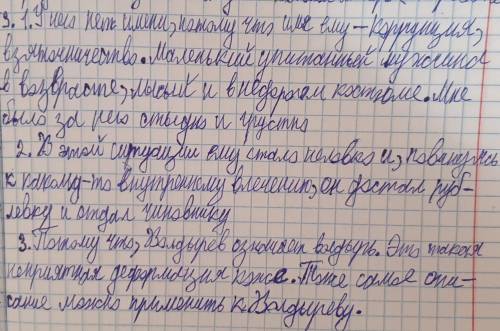 3. 1. У него нет имени, потому что имя ему – Коррупция,
взяточничество. Маленький упитанный мужчина
в возврасте, лысый и в недорогом костюме. Мне
было за него стыдно и грустно
2. В этой ситуации ему стало неловко и, повинуясь
к какому-то внутреннему влечению, он достал руб-
левку и отдал чиновнику
3. Потому что, Волдырев означает волдырь. Это такая
неприятная деформация кожи. Тоже самое опи-
сание можно применить к Волдыреву.